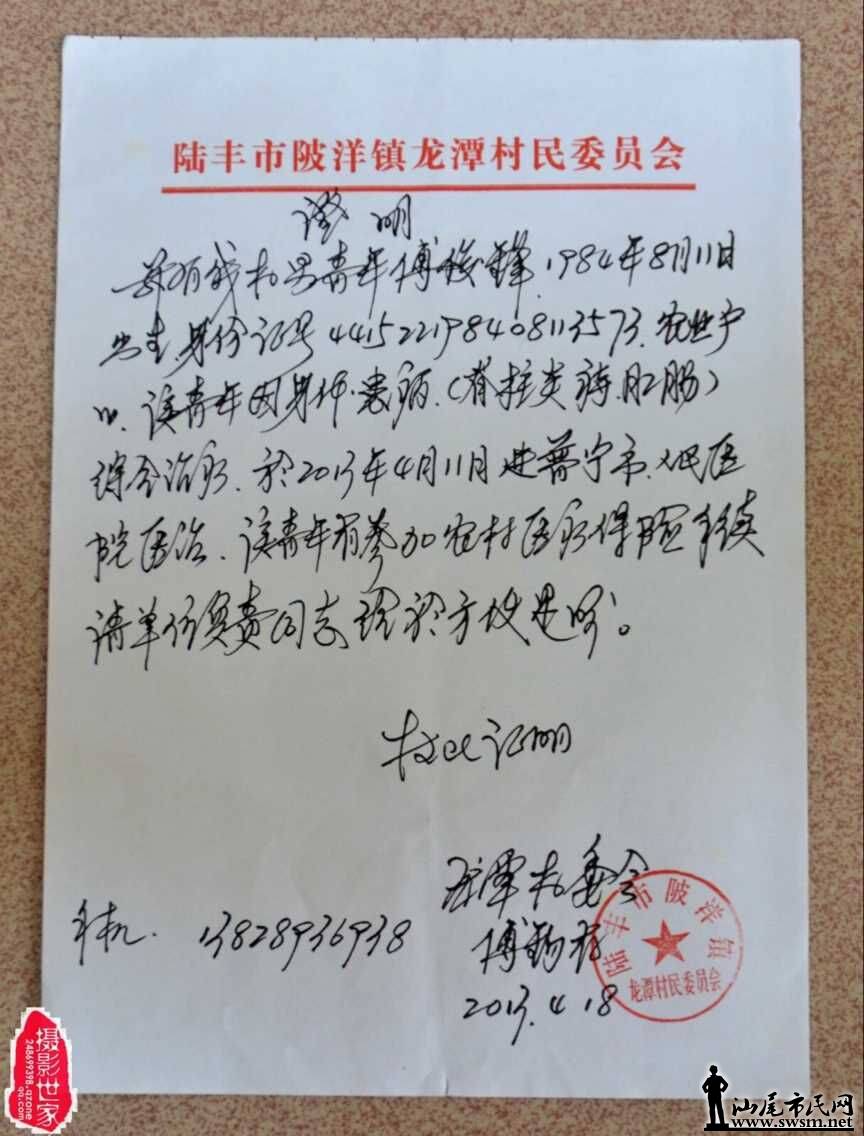 陆丰市陂洋镇龙潭村民委员会
证明
兹有我村男青年傅俊锋.1984年8月11日
出生身份证号441522198408113573.农业户
口.该青年因身体患病.(脊柱类 肛肠)
综合治疗.於2013年4月11日进普宁市.人民医
院医治.该青年有参加农村医疗保险手续
请单位负责同志给於方便是盼。
特此证明
龙潭村委会
傅
手机. 13828936938
2013.4.18
陆丰市陂洋镇
龙潭村民委员会
摄影世家
248699398.qzone
qq.com
汕尾市民网
www.swsm.net